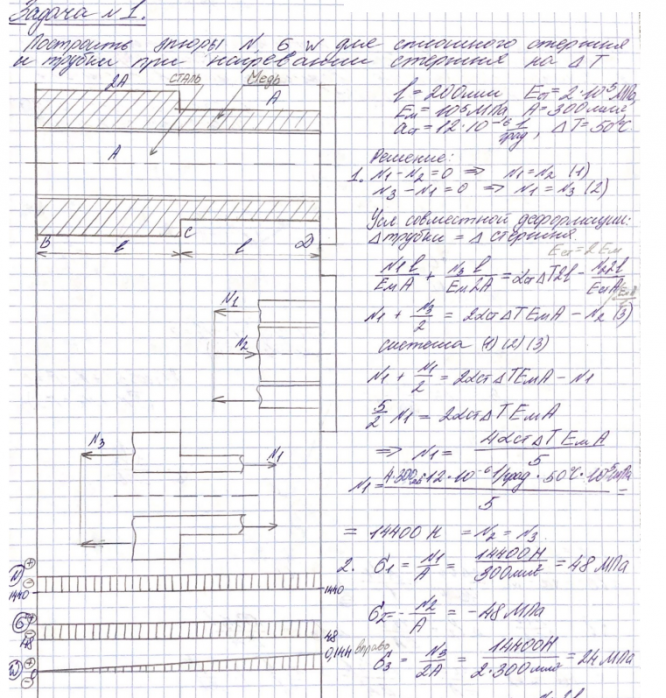 Задача №1.
Построить эпюры N, б, w для сплошного стержня
и трубки при нагревании стержня на ΔT
2A сталь Медь A
l = 200мм Eст = 2·10⁵ МПа,
Eм = 10⁵ МПа A = 300мм²
αст = 12·10⁻⁶ 1/град, ΔT = 50°C
A
Решение:
1. N1 - N2 = 0 => N1 = N2 (1)
N3 - N1 = 0 => N1 = N3 (2)
Усл совместной деформации:
Δ трубки = Δ стержня
Eст = 2 Eм
B l C l D
N1l/EмA + N3l/Eм2A = αстΔT2l - N22l/EстA
N1 + N3/2 = 2αстΔTEмA - N2 (3)
система (1) (2) (3)
N1
N2
N1 + N1/2 = 2αстΔTEмA - N1
5/2 N1 = 2αстΔTEмA
=> N1 = 4αстΔTEмA/5
N3 N1
= 14400 Н = N2 = N3
2. б1 = N1/A = 14400Н/300мм² = 48 МПа
б2 = - N2/A = -48 МПа
б3 = N3/2A = 14400Н/2·300мм² = 24 МПа
N + -
1440 1440
б + -
48 48
w + -
0 0,144 вправо